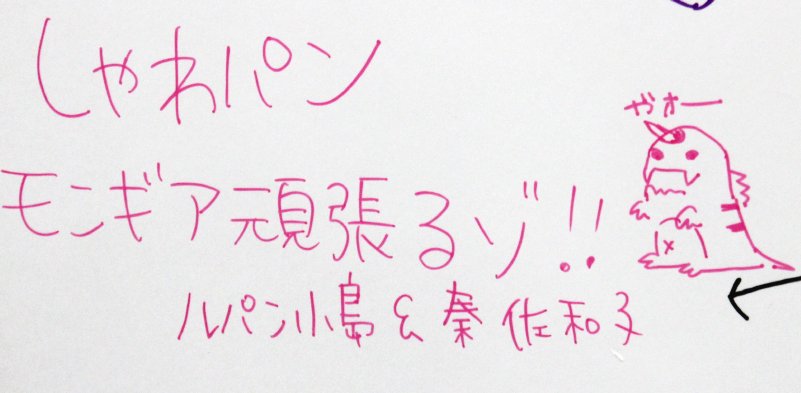 しゃわパン
がオー
モンギア頑張るゾ!!
ルパン小島&秦佐和子